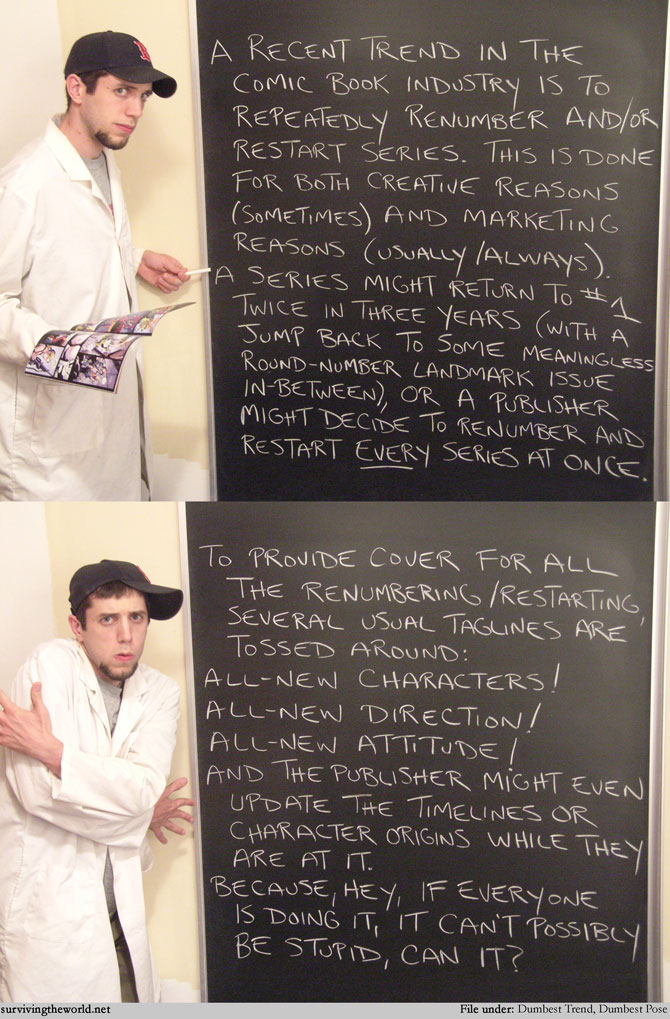 A RECENT TREND IN THE
COMIC BOOK INDUSTRY IS TO
REPEATEDLY RENUMBER AND/OR
RESTART SERIES. THIS IS DONE
FOR BOTH CREATIVE REASONS
(SOMETIMES) AND MARKETING
REASONS (USUALLY/ALWAYS).
A SERIES MIGHT RETURN TO #1
TWICE IN THREE YEARS (WITH A
JUMP BACK TO SOME MEANINGLESS
ROUND-NUMBER LANDMARK ISSUE
IN-BETWEEN), OR A PUBLISHER
MIGHT DECIDE TO RENUMBER AND
RESTART EVERY SERIES AT ONCE.
TO PROVIDE COVER FOR ALL
THE RENUMBERING/RESTARTING,
SEVERAL USUAL TAGLINES ARE
TOSSED AROUND:
ALL-NEW CHARACTERS!
ALL-NEW DIRECTION!
ALL-NEW ATTITUDE!
AND THE PUBLISHER MIGHT EVEN
UPDATE THE TIMELINES OR
CHARACTER ORIGINS WHILE THEY
ARE AT IT.
BECAUSE, HEY, IF EVERYONE
IS DOING IT, IT CAN'T POSSIBLY
BE STUPID, CAN IT?
survivingtheworld.net
File under: Dumbest Trend, Dumbest Pose